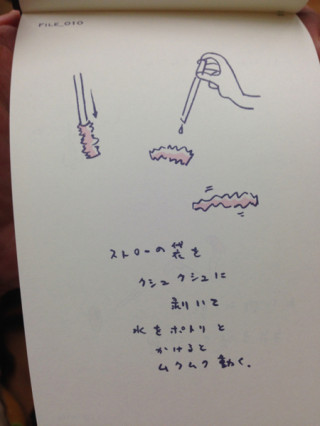 FILE_010
ストローの袋を
クシュクシュに
剥いて
水をポトリと
かけると
ムクムク動く.